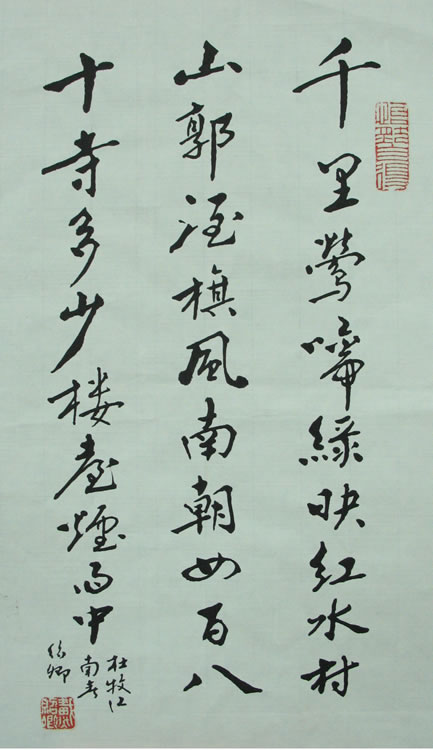 千里鶯啼綠映紅水村
山郭酒旗風南朝四百八
十寺多少楼臺煙雨中
杜牧江
南春
紹卿